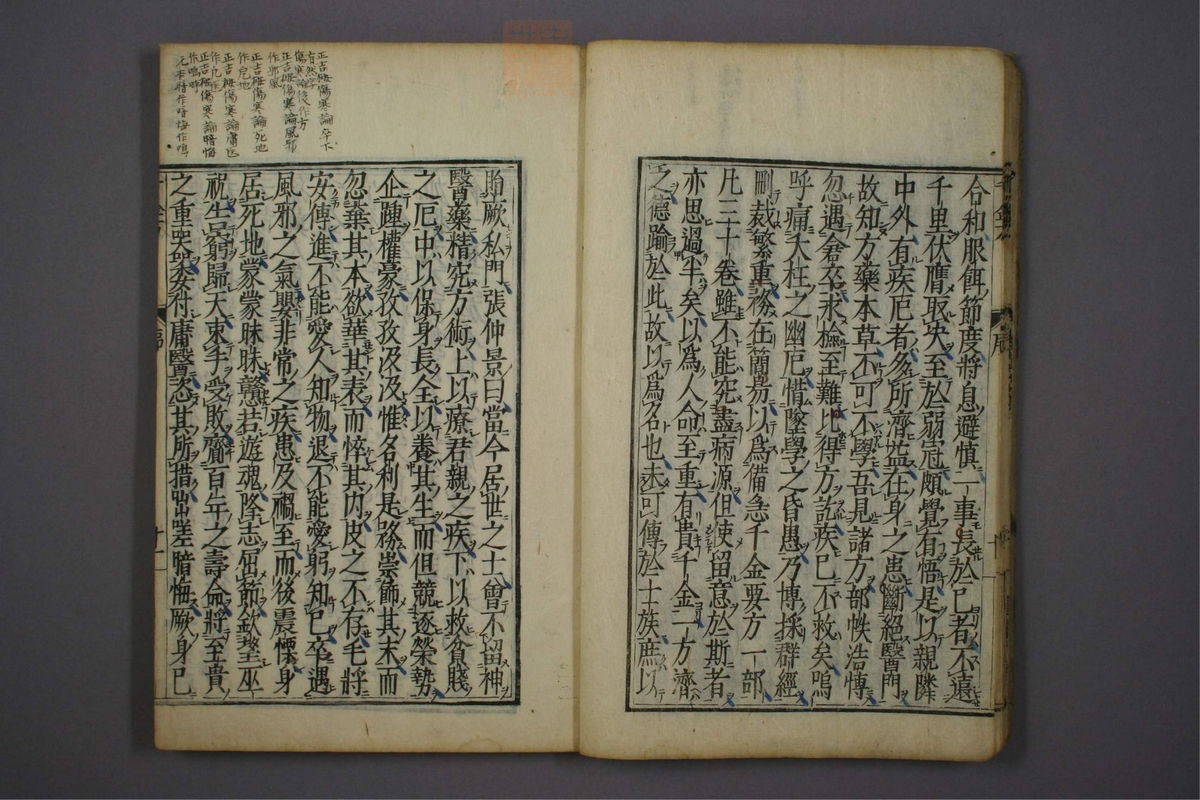 合和服餌節度將息避慎一事長於己者不遠
千里伏膺取決至於弱冠頗覺有悟是以親隣
中外有疾厄者多所濟益在身之患斷絕醫門
故知方藥本草不可不學吾見諸方部帙浩愽
忽遇倉卒求檢至難比得方訖疾已不救矣嗚
呼痛夭枉之幽厄惜墜學之昏愚乃博採群經
刪裁繁重務在簡易以爲備急千金要方一部
凡三十卷雖不能究盡病源但使留意於斯者
亦思過半矣以爲人命至重有貴千金一方濟
之德踰於此故以爲名也未可傳於士族庶以
序
十
正吉
傷寒論卒下
有然字
傷寒論後作方
正吉
傷寒論風邪
作邪風
正吉
傷寒論死地
作厄地
正吉
傷寒論庸医
作凡医
正吉
傷寒論暗悔
作嗚呼
元本暗作喑悔作嗚
貽厥私門張仲景曰當今居世之士曾不留神
醫藥精究方術上以療君親之疾下以救貧賤
之厄中以保身長全以養其生而但競逐榮勢
企踵權豪孜孜汲汲惟名利是務崇飾其末而
忽棄其本欲華其表而悴其內皮之不存毛將
安傅進不能愛人知物退不能愛躬知己卒遇
風邪之氣嬰非常之疾患及禍至而後震慄身
居死地蒙蒙昧昧戇若遊魂降志屈節欽望巫
祝告窮歸天束手受敗齎百年之壽命將至貴
之重器委付庸醫恣其所措咄嗟暗悔厥身已
序
十一